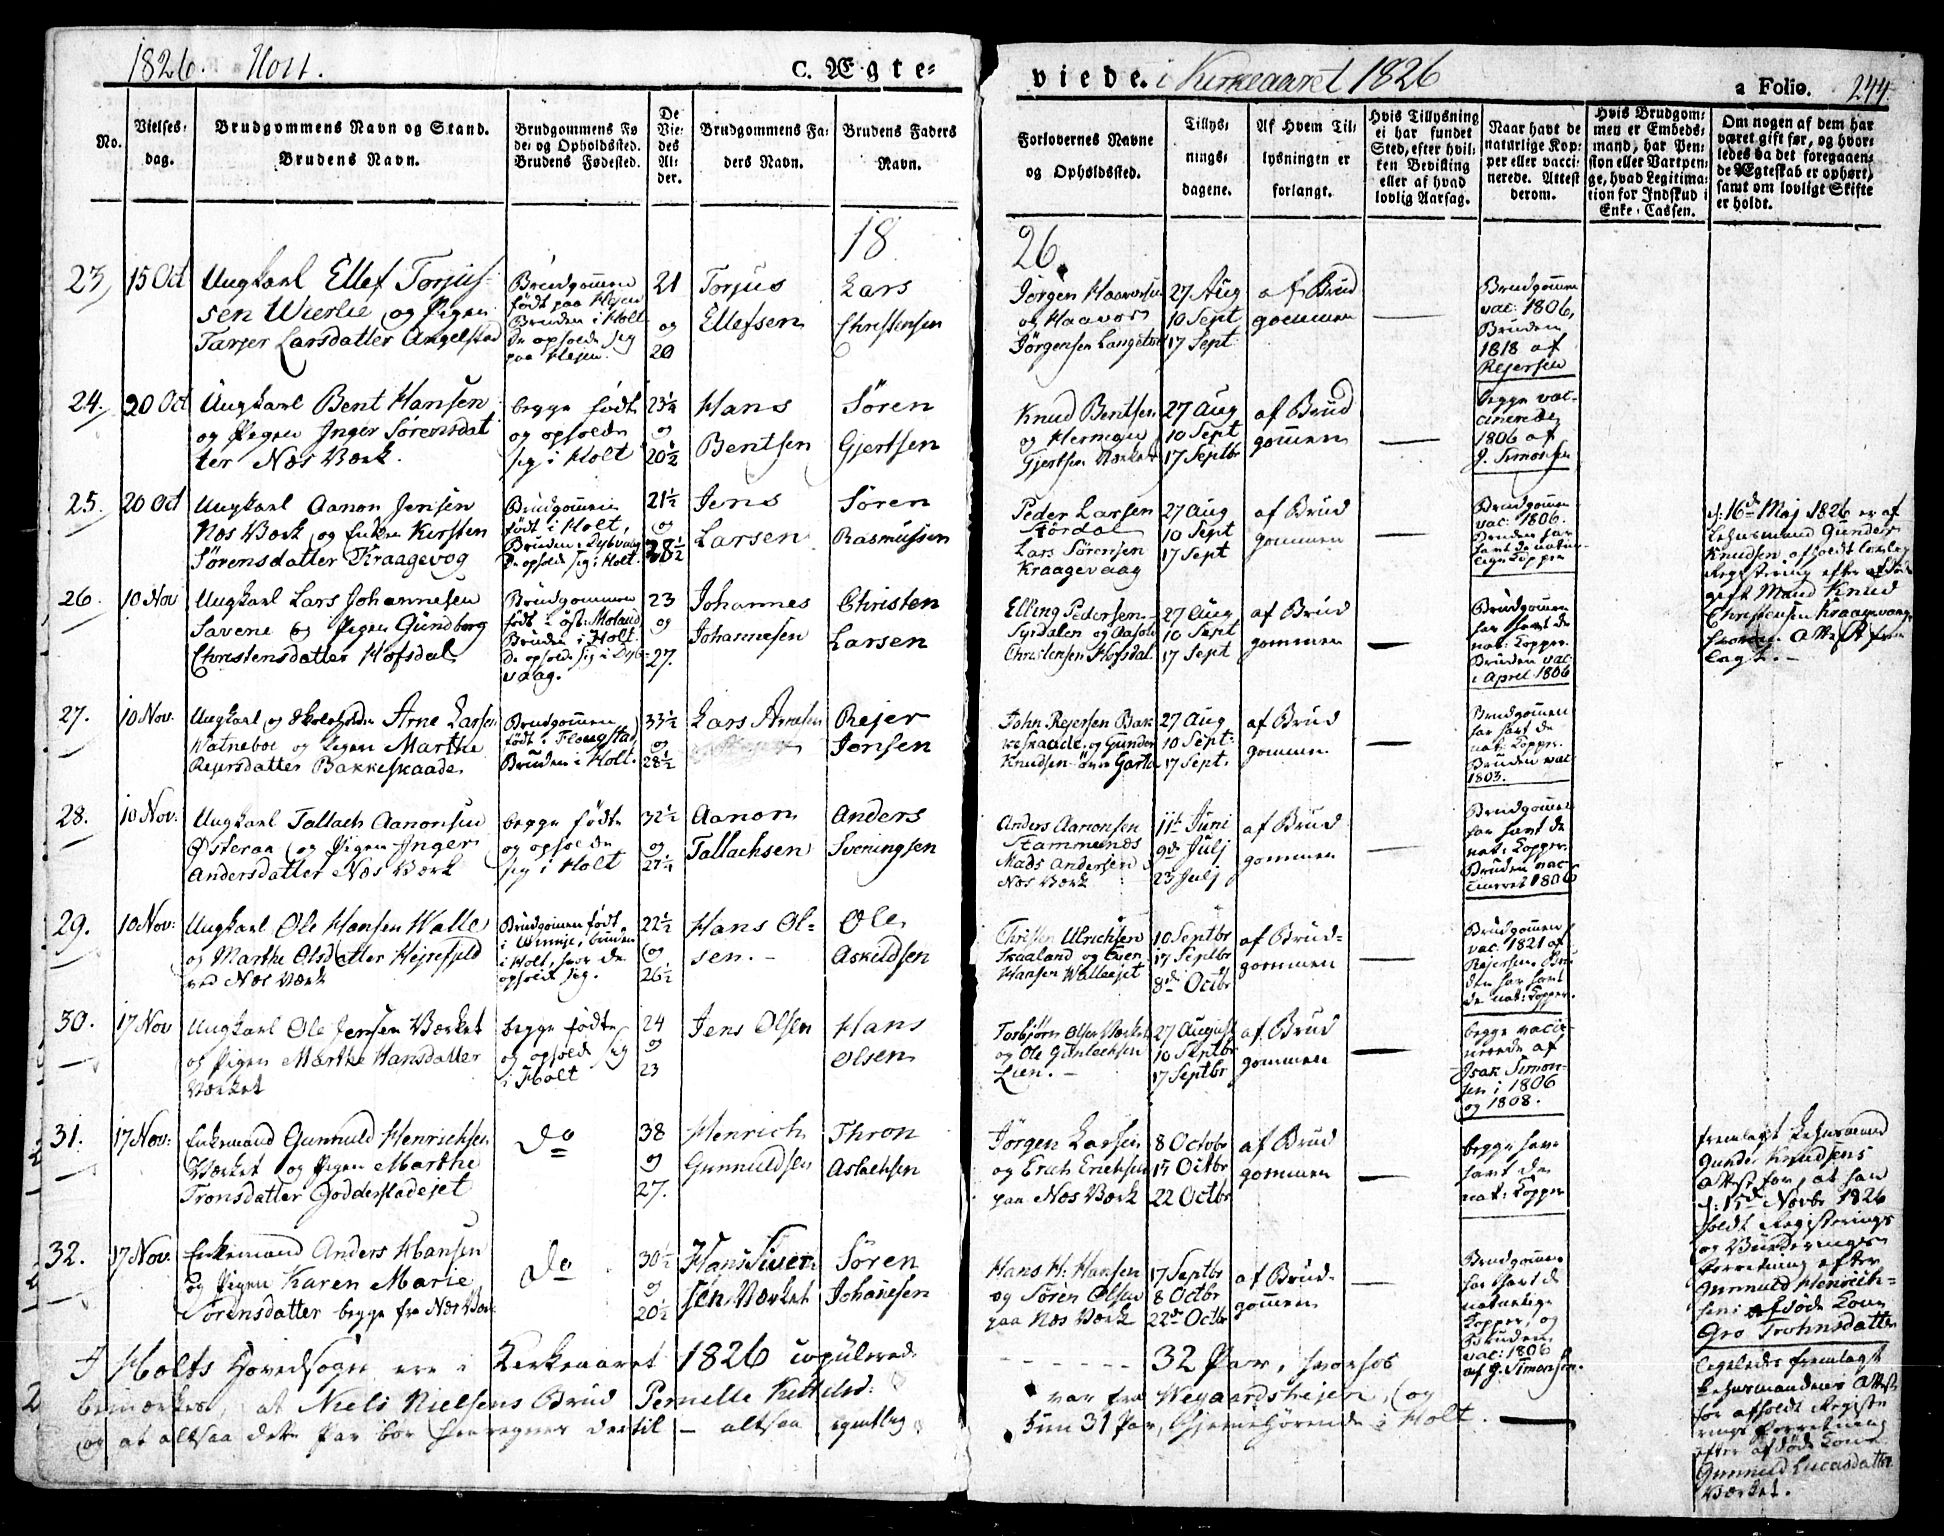 1826. Holt. C. Ægte-
viede. i Kirkeaaret 1826 a Folio. 244.
No.
Vielses-
dag.
Brudgommens Navn og Stand.
Brudens Navn.
Brudgommens Fø
de- og Opholdssted.
Brudens Fødested.
De
Vie-
des
Al-
der.
Brudgommens Fa-
ders Navn.
Brudens Faders
Navn.
Forlovernes Navne
og Opholdssted.
Tillys-
nings-
dagene.
Af Hvem Til-
lysningen er
forlangt.
Hvis Tillysning
ei har fundet
Sted, efter hvil-
ken Bevilling
eller af hvad
lovlig Aarsag.
Naar havt de
naturlige Kop-
per eller vacci-
nerede. Attest
derom.
Hvis Brudgom-
men er Embeds-
mand, har Pen-
sion eller Vartpen-
ge, hvad Legitima-
tion for Indskud i
Enke-Cassen.
Om nogen af dem har
været gift før, og hvor-
ledes da det foregaaen-
de Ægteskab er ophørt,
samt om lovligt Skifte
er holdt.
18 26.
23 15 Oct
Ungkarl Ellef Torjus-
sen Wierlie og Pigen
Tarjer Larsdatter Angelstad
Brudgommen
født paa Hejen
Bruden i Holt
De opholde sig
paa Hejen.
21
og
20
Torjus
Ellefsen
Lars
Christensen
Jørgen Haavorsen
og Haavor
Jørgensen
27 Aug
10 Sept
17 Sept
af Brud
gommen
Brudgommen
vac: 1806,
Bruden
1818 af
Rejersen
24. 20 Oct
Ungkarl Bent Hansen
og Pigen Inger Sørensdat
ter Næs Værk.
begge født
og opholde
sig i Holt
23¼
og
20½
Hans
Bentsen
Søren
Gjertsen
Knud Bentsen
og
Gjertsen Værket
27 Aug
10 Sept
17 Septbr
af Brud
gommen
begge vac-
cinerede
1806 af
J. Simonsen
25. 20 Oct
Ungkarl Aanon Jensen
Næs Værk og Enken Kersten
Sørensdatter Kraagevog
Brudgommen
født i Holt,
Bruden i Dybvaag
De opholde sig i Holt.
21½
og
28½
Jens
Larsen
Søren
Rasmussen
Peder Larsen
Størdal
Lars Sørensen
Kraagevaag
27 Aug
10 Sept
17 Sept
af Brud
gommen
Brudgommen
vac: 1806.
Bruden har
havt de natur-
lige Kopper
d: 16de Maj 1826 er af
Lehnsmand Gunder
Knudsen afholdt lovlig
Registering efter afdøde
gift Mand Knud
Christensen Kraagevaag
hvorom Attest frem
lagt. -
26. 10 Nov
Ungkarl Lars Johannesen
Savene og Pigen Gundborg
Christensdatter Hofsdal
Brudgommen
født i Øst: Moland
Bruden i Holt.
De opholde sig i Dyb-
vaag.
23
og
27.
Johannes
Johannesen
Christen
Larsen
Elling Pedersen
Syrdalen og Aasolv
Christensen Hofsdal
27 Aug
10 Sept
17 Sept
af Brud
gommen
Brudgommen
har havt de
nat: Kopper.
Bruden vac:
i April 1806
27. 10 Nov.
Ungkarl og Skoleholder Arne Larsen
Watneboe og Pigen Marthe
Rejersdatter Bakkeskaade
Brudgommen
født i Flougstad
Bruden i Holt.
33½
og
28½
Lars Arnesen
Rejer
Jonsen
John Rejersen Bak
keskaade og Gunder
Knudsen
27 Aug
10 Sept.
17 Sept.
af Brud
gommen
Brudgommen
har havt de
nat: Kopper.
Bruden vac:
1803.
28. 10 Nov:
Ungkarl Tallach Aanonsen
Østeraa og Pigen Inger
Andersdatter Næs Værk
begge fødte
og opholde
sig i Holt
32½
og
27¼
Aanon
Tallachsen
Anders
Sveningsen
Anders Aanonsen
Stammenæs
Mads Andersen
Næs Værk
11te Juni
9de Julj
23 Julj
af Brud
gommen
Brudgommen
har havt de
nat: Kopper.
Bruden vac-
cineret 1806
29. 10 Nov:
Ungkarl Ole Hansen Walle
og Marthe Olsdatter Hejrefjeld
ved Næs Værk
Brudgommen født
i Winnje, bruden
i Holt, hvor de
opholde sig.
22½
og
26½
Hans Ol-
sen. -
Ole
Askeldsen
Christen Ulrichsen
Skaaland og Even
Hansen Walleejet
10 Septbr
17 Septbr
8de Octbr
af Brud-
gommen
Brudgommen
vac: 1821 af
Rejersen. Bru
den har havt
de nat: Kopper.
30. 17 Nov
Ungkarl Ole Jensen Værket
og Pigen Marthe Hansdatter
Værket
begge fødte
og opholde sig
i Holt
24
og
23
Jens Olsen
Hans
Olsen
Torbjørn Olsen Værket
og Ole Gunlachsen
Lien. -
27 August
10 Septbr
17 Septbr
af Brud
gommen
begge vacci-
nerede af
Isak Simon-
sen i 1806
og 1808.
31. 17 Nov:
Enkemand Gunnuld Henrichsen
Værket og Pigen Marthe
Tronsdatter Godderstadejet
do
38
og
27.
Henrich
Gunnuldsen
Thron
Aslachsen
Jørgen Larsen
og Erich Erichsen
paa Næs Værk
8 Octobr
15 Octbr
22 Octbr
af Brud
gommen
begge have
havt de
nat: Kopper
fremlagt Lehnsmand
Gunder Knudsens
Attest for, at han
d: 15de Novbr 1826
holdt Registerings
og Vurderings
forretning efter
Gunnuld Henrich-
sens afdøde Kone
Gro Trohnsdatter
32. 17 Nov.
Enkemand Anders Hansen
og Pigen Karen Marie
Sørensdatter begge fra Næs Værk
do
30½
og
20½
Hans Siver
sen Værket
Søren
Johannesen
Hans H. Hansen
og Søren Olsen
paa Næs Værk
17 Septbr
8 Octbr
22de Octbr
af Brud-
gommen
Brudgommen
har havt de
naturlige
Kopper, og
Bruden
vac: 1806
af J. Simonsen.
ligeledes fremlagt
Lehnsmandens Attest
for afholdt Registe
rings forretning
efter afdøde Kone
Gunnild Lucasdatter
Værket.
I Holts Hovedsogn ere i Kirkeaaret 1826 copulered - - - - - - 32 Par, hvorhos
bemærkes, at Niels Nielsens Brud Pernelle Kittelsd: var fra Wegaardshejen, og
og at altsaa dette Par bør henregnes dertil - altsaa egentlig kun 31 Par, hjemmehørende i Holt.